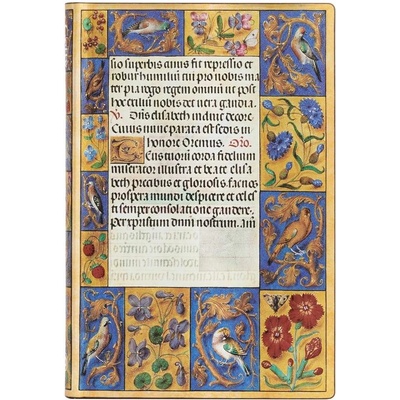 sio superbis cuius fit repressio et
robur humiliū tui pro nobis ma
ter pia rego regem omniū ut post
h exiliū nobis det vera gaudia.
V. elisabeth decore
Cuius nunc parata est sedis in
honore Oremus. Oro.
corda fidelium
miserator illustra et beate elisa
beth precibus et gloriosis. fac nos
prospera mundi despicere et celes
ti semper consolatione gaudere.
Per xpistum dnm nostrum. am